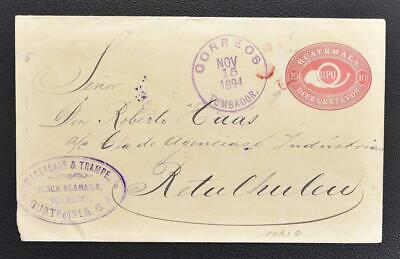 CORREOS
NOV
15
1894
TUMBADOR.
GUATEMALA
10 UPU 10
DIEZ CENTAVOS
Señor
Don Roberto Haas
a/c Cia de Agencias é Industrias
Retalhuleu
& TRAMPE,
FINCA
GUATEMALA, C. A.